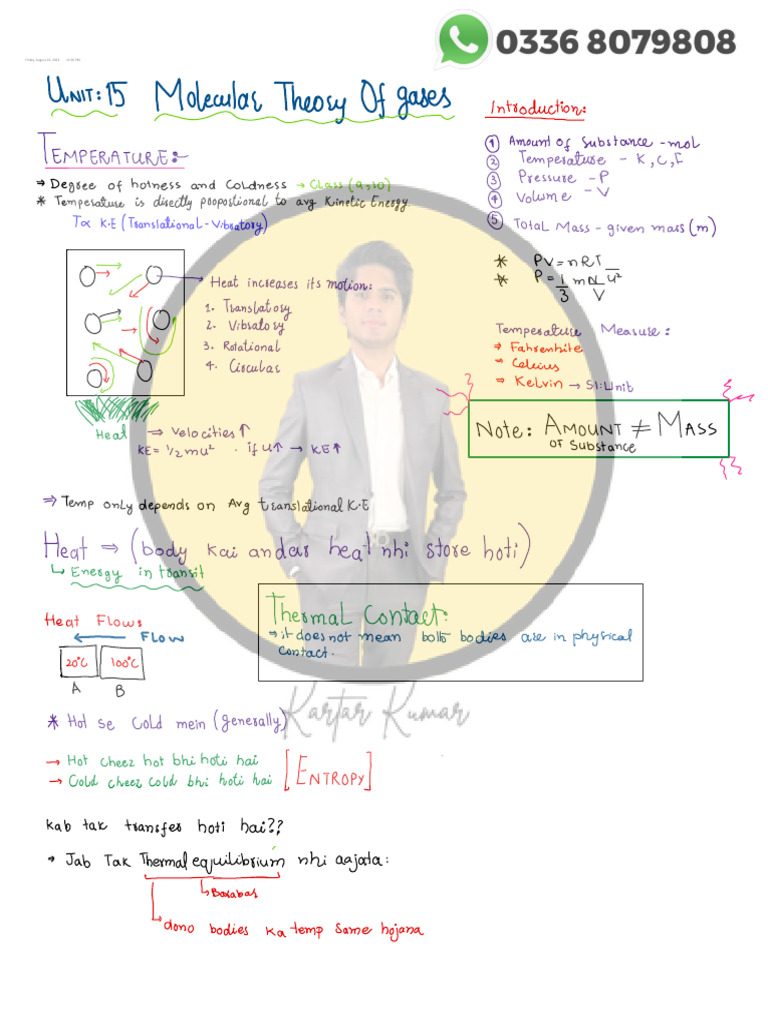 0336 8079808
UNIT: 15 Molecular Theory Of gases
TEMPERATURE:-
⇒ Degree of hotness and Coldness → Class (9,10)
* Temperature is directly propostional to avg Kinetic Energy.
T ∝ K.E (Translational-Vibratory)
Heat increases its motion:
1. Translatory
2. Vibratory
3. Rotational
4. Circular
Heat
⇒ Velocities ↑
KE = 1/2 mu² . if u↑ → KE↑
Introduction:
1 Amount of Substance - mol
2 Temperature - K, C, F
3 Pressure - P
4 Volume - V
5 Total Mass - given mass (m)
* PV = nRT
* P = 1/3 mN/V u²
Temperature Measure:
→ Fahrenhite
→ Celcius
→ Kelvin → SI:Unit
Note: AMOUNT ≠ MASS
OF SUBSTANCE
⇒ Temp only depends on Avg translational K.E
Heat ⇒ (body kai andar heat nhi store hoti)
Energy in transit
Heat Flows
FLOW
20°C 100°C
A B
Thermal Contact:
⇒ it does not mean both bodies are in physical
contact.
Kartar Kumar
* Hot se cold mein (generally)
→ Hot cheez hot bhi hoti hai
→ Cold cheez cold bhi hoti hai
[ENTROPY]
Kab tak transfer hoti hai??
• Jab Tak Thermal equilibrium nhi aajata:
Barabar
dono bodies ka temp same hojana